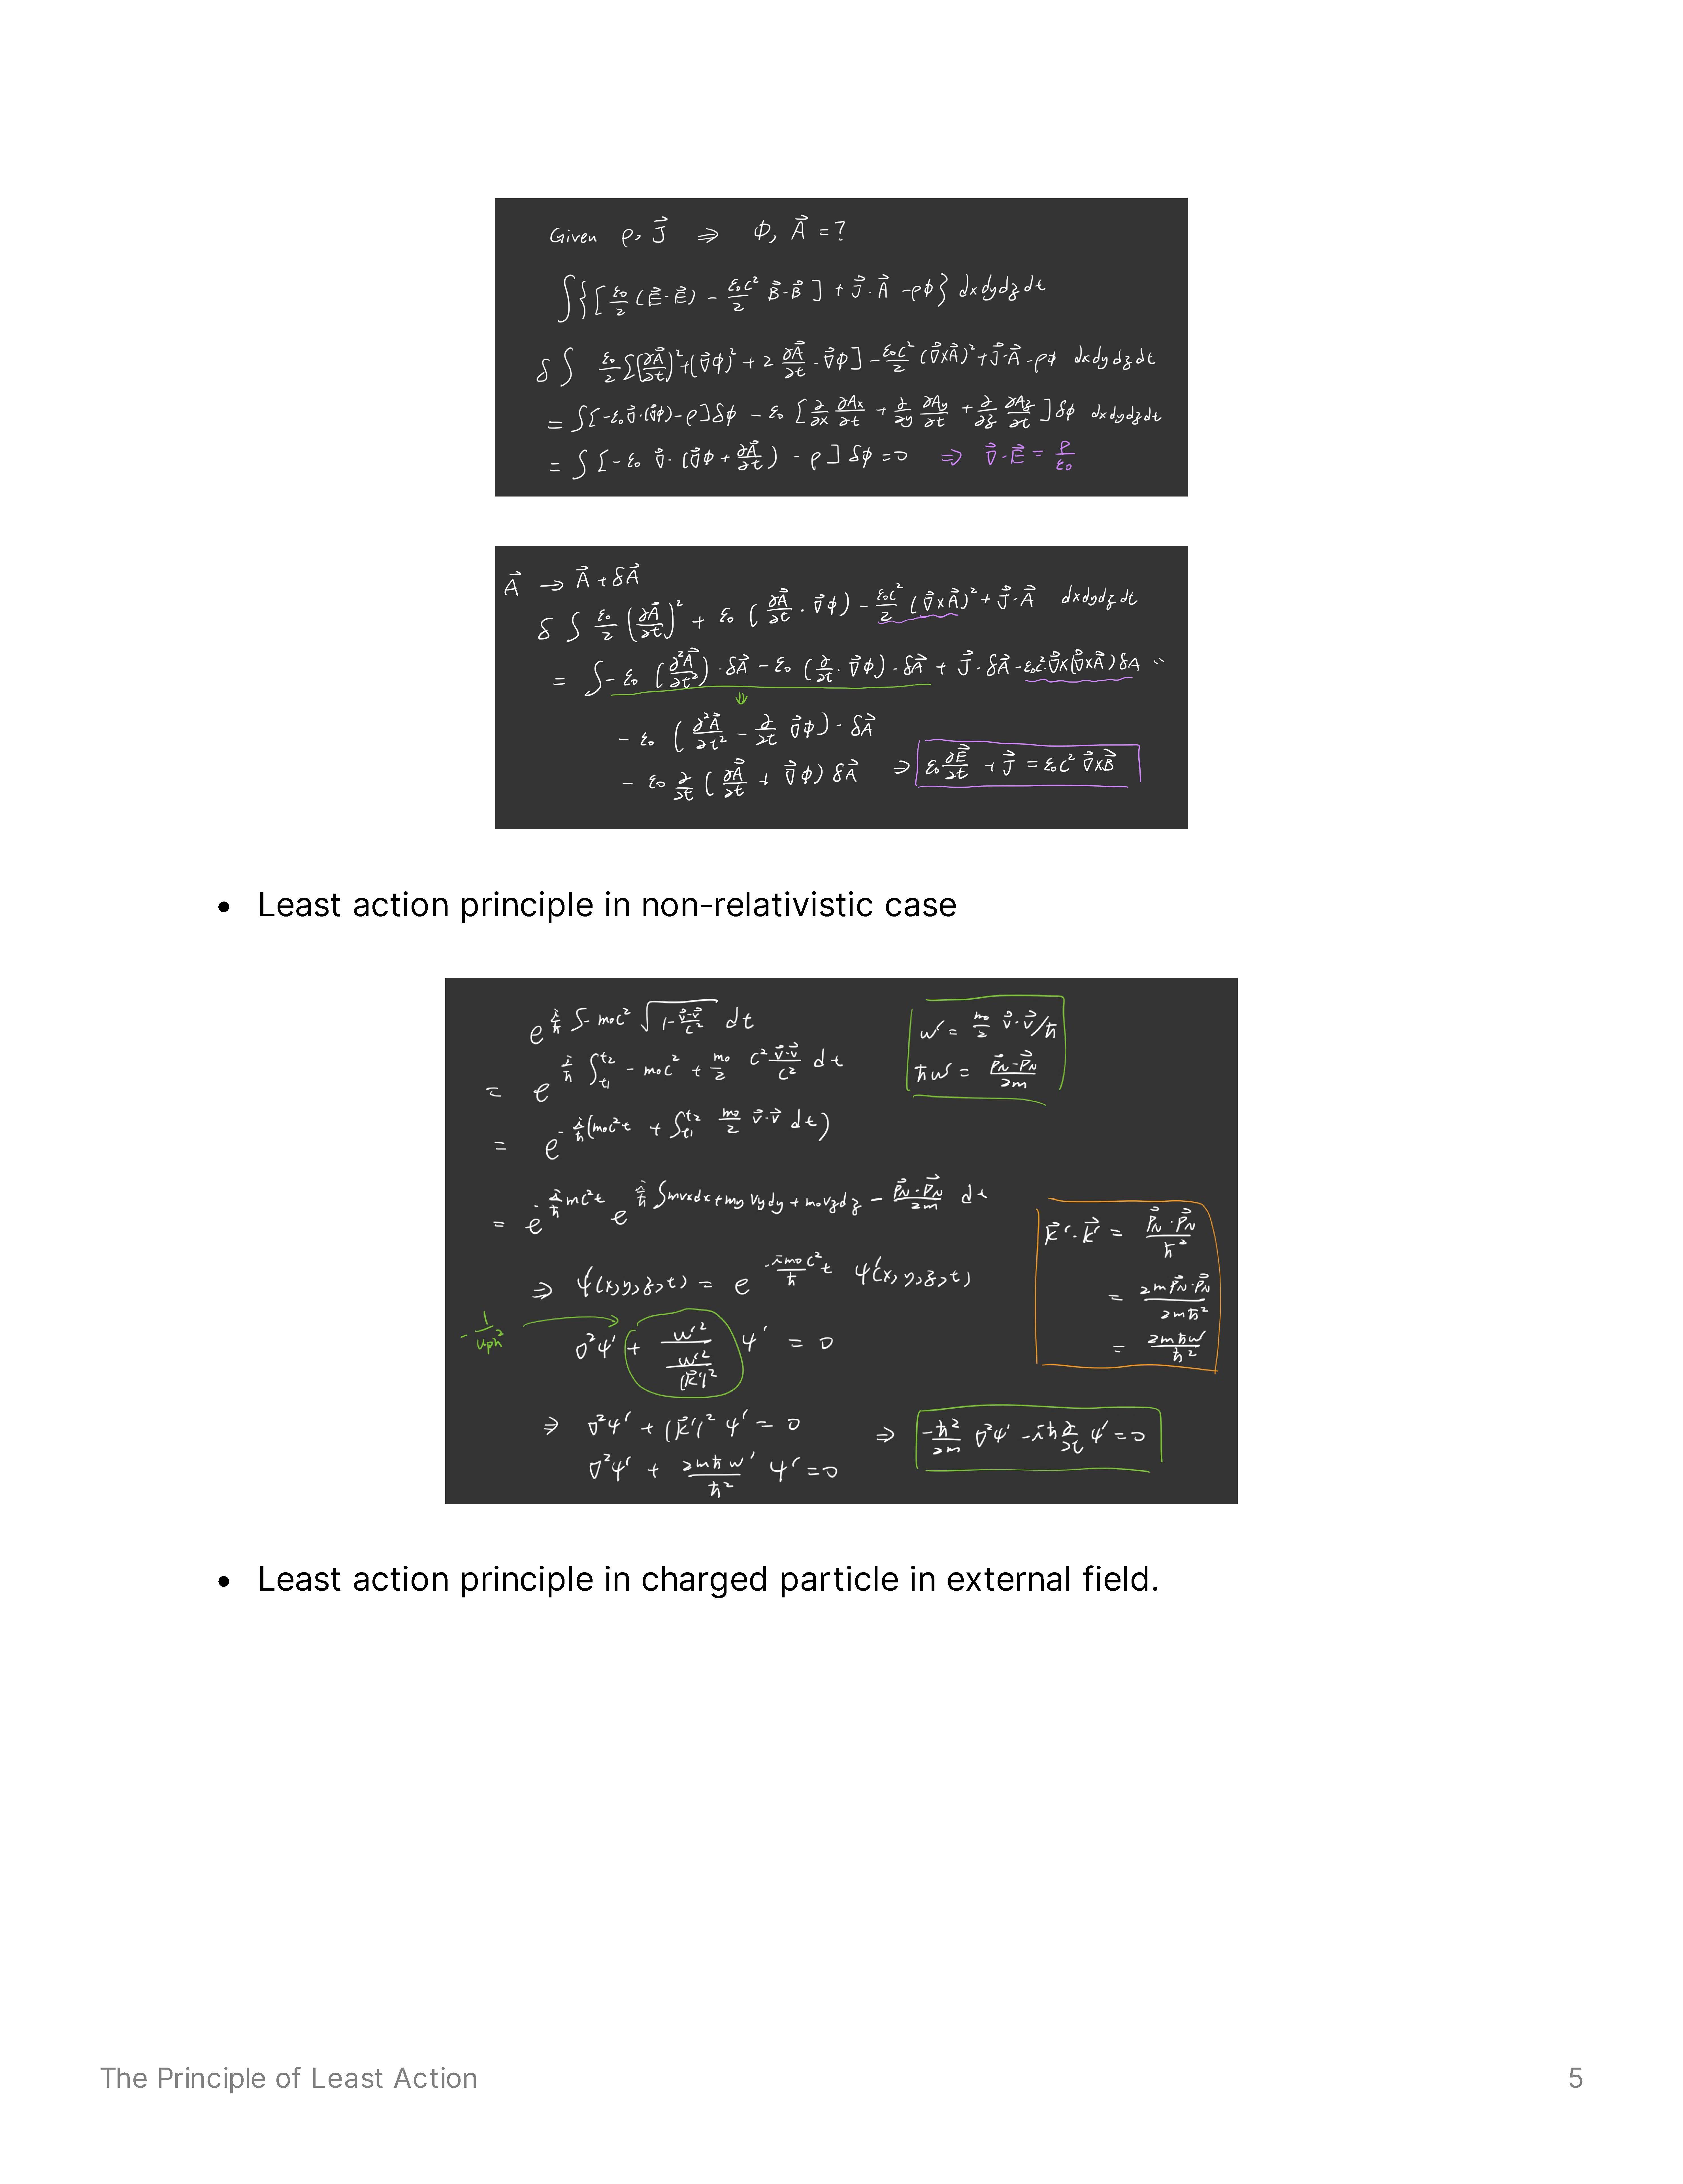 Given ρ, J⃗ ⇒ ϕ, A⃗ = ?
∫{[ε₀/2 (E⃗·E⃗) − ε₀c²/2 B⃗·B⃗] + J⃗·A⃗ − ρϕ} dxdydzdt
δ∫ ε₀/2 [(∂A⃗/∂t)² + (∇⃗ϕ)² + 2 ∂A⃗/∂t · ∇⃗ϕ] − ε₀c²/2 (∇⃗×A⃗)² + J⃗·A⃗ − ρϕ dxdydzdt
= ∫[−ε₀∇⃗·(∇⃗ϕ) − ρ]δϕ − ε₀ [∂/∂x ∂Ax/∂t + ∂/∂y ∂Ay/∂t + ∂/∂z ∂Az/∂t] δϕ dxdydzdt
= ∫[−ε₀ ∇⃗·(∇⃗ϕ + ∂A⃗/∂t) − ρ] δϕ = 0 ⇒ ∇⃗·E⃗ = ρ/ε₀
A⃗ → A⃗ + δA⃗
δ∫ ε₀/2 (∂A⃗/∂t)² + ε₀ (∂A⃗/∂t · ∇⃗ϕ) − ε₀c²/2 (∇⃗×A⃗)² + J⃗·A⃗ dxdydzdt
= ∫−ε₀ (∂²A⃗/∂t²)·δA⃗ − ε₀ (∂/∂t · ∇⃗ϕ)·δA⃗ + J⃗·δA⃗ − ε₀c²·∇⃗×(∇⃗×A⃗)δA ··
⇓
−ε₀ (∂²A⃗/∂t² − ∂/∂t ∇⃗ϕ)·δA⃗
−ε₀ ∂/∂t (∂A⃗/∂t + ∇⃗ϕ) δA⃗ ⇒ ε₀ ∂E⃗/∂t + J⃗ = ε₀c² ∇⃗×B⃗
• Least action principle in non-relativistic case
e^{i/ħ ∫−m₀c² √(1−v⃗·v⃗/c²) dt}
= e^{i/ħ ∫_{t1}^{t2} −m₀c² + m₀/2 c² v⃗·v⃗/c² dt}
= e^{−i/ħ(m₀c²t + ∫_{t1}^{t2} m₀/2 v⃗·v⃗ dt)}
= e^{−i/ħ mc²t} e^{i/ħ ∫mvxdx+my vydy+m₀vzdz − P⃗N·P⃗N/2m dt}
⇒ ψ(x,y,z,t) = e^{−im₀c²/ħ t} ψ′(x,y,z,t)
−1/uph²
∇²ψ′ + w′²/(w′²/(k⃗′)²) ψ′ = 0
⇒ ∇²ψ′ + (k⃗′)² ψ′ = 0
∇²ψ′ + 2mħw′/ħ² ψ′ = 0
⇒ −ħ²/2m ∇²ψ′ − iħ ∂/∂t ψ′ = 0
w′ = m₀/2 v⃗·v⃗/ħ
ħw′ = P⃗N·P⃗N/2m
k⃗′·k⃗′ = P⃗N·P⃗N/ħ²
= 2mP⃗N·P⃗N/2mħ²
= 2mħw′/ħ²
• Least action principle in charged particle in external field.
The Principle of Least Action 5